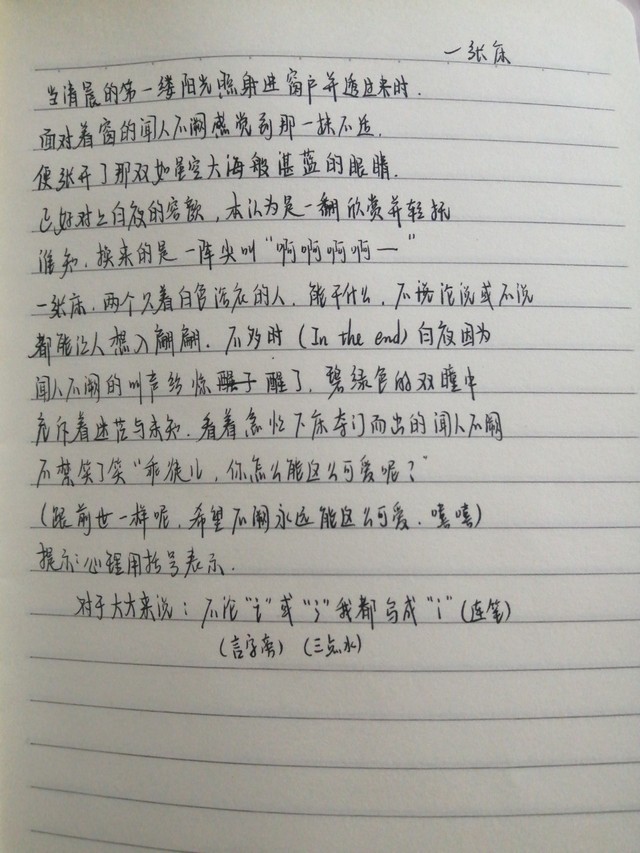 一张床
当清晨的第一缕阳光照射进窗户并透过来时.
面对着窗的闻人不阙感觉到那一抹不适.
便张开了那双如星空大海般湛蓝的眼睛.
已好对上白夜的容颜,本认为是一翻欣赏并轻抚
谁知.换来的是一阵尖叫“啊啊啊啊一”
一张床.两个只着白色浴衣的人.能干什么.不说沦没或不说
都能让人想入翩翩.不多时(In the end)白夜因为
闻人不阙的叫声给惊醒了.碧绿色的双瞳中
充斥着迷茫与未知.看着急忙下床夺门而出的闻人不阙
不禁笑了笑“乖徒儿,你怎么能这么可爱呢?”
(跟前世一样呢,希望不阙永远能这么可爱.嘻嘻)
提示:心理用括号表示.
对于大方来说:不论“讠”或“氵”我都写成“i”(连笔)
(言字旁) (三点水)